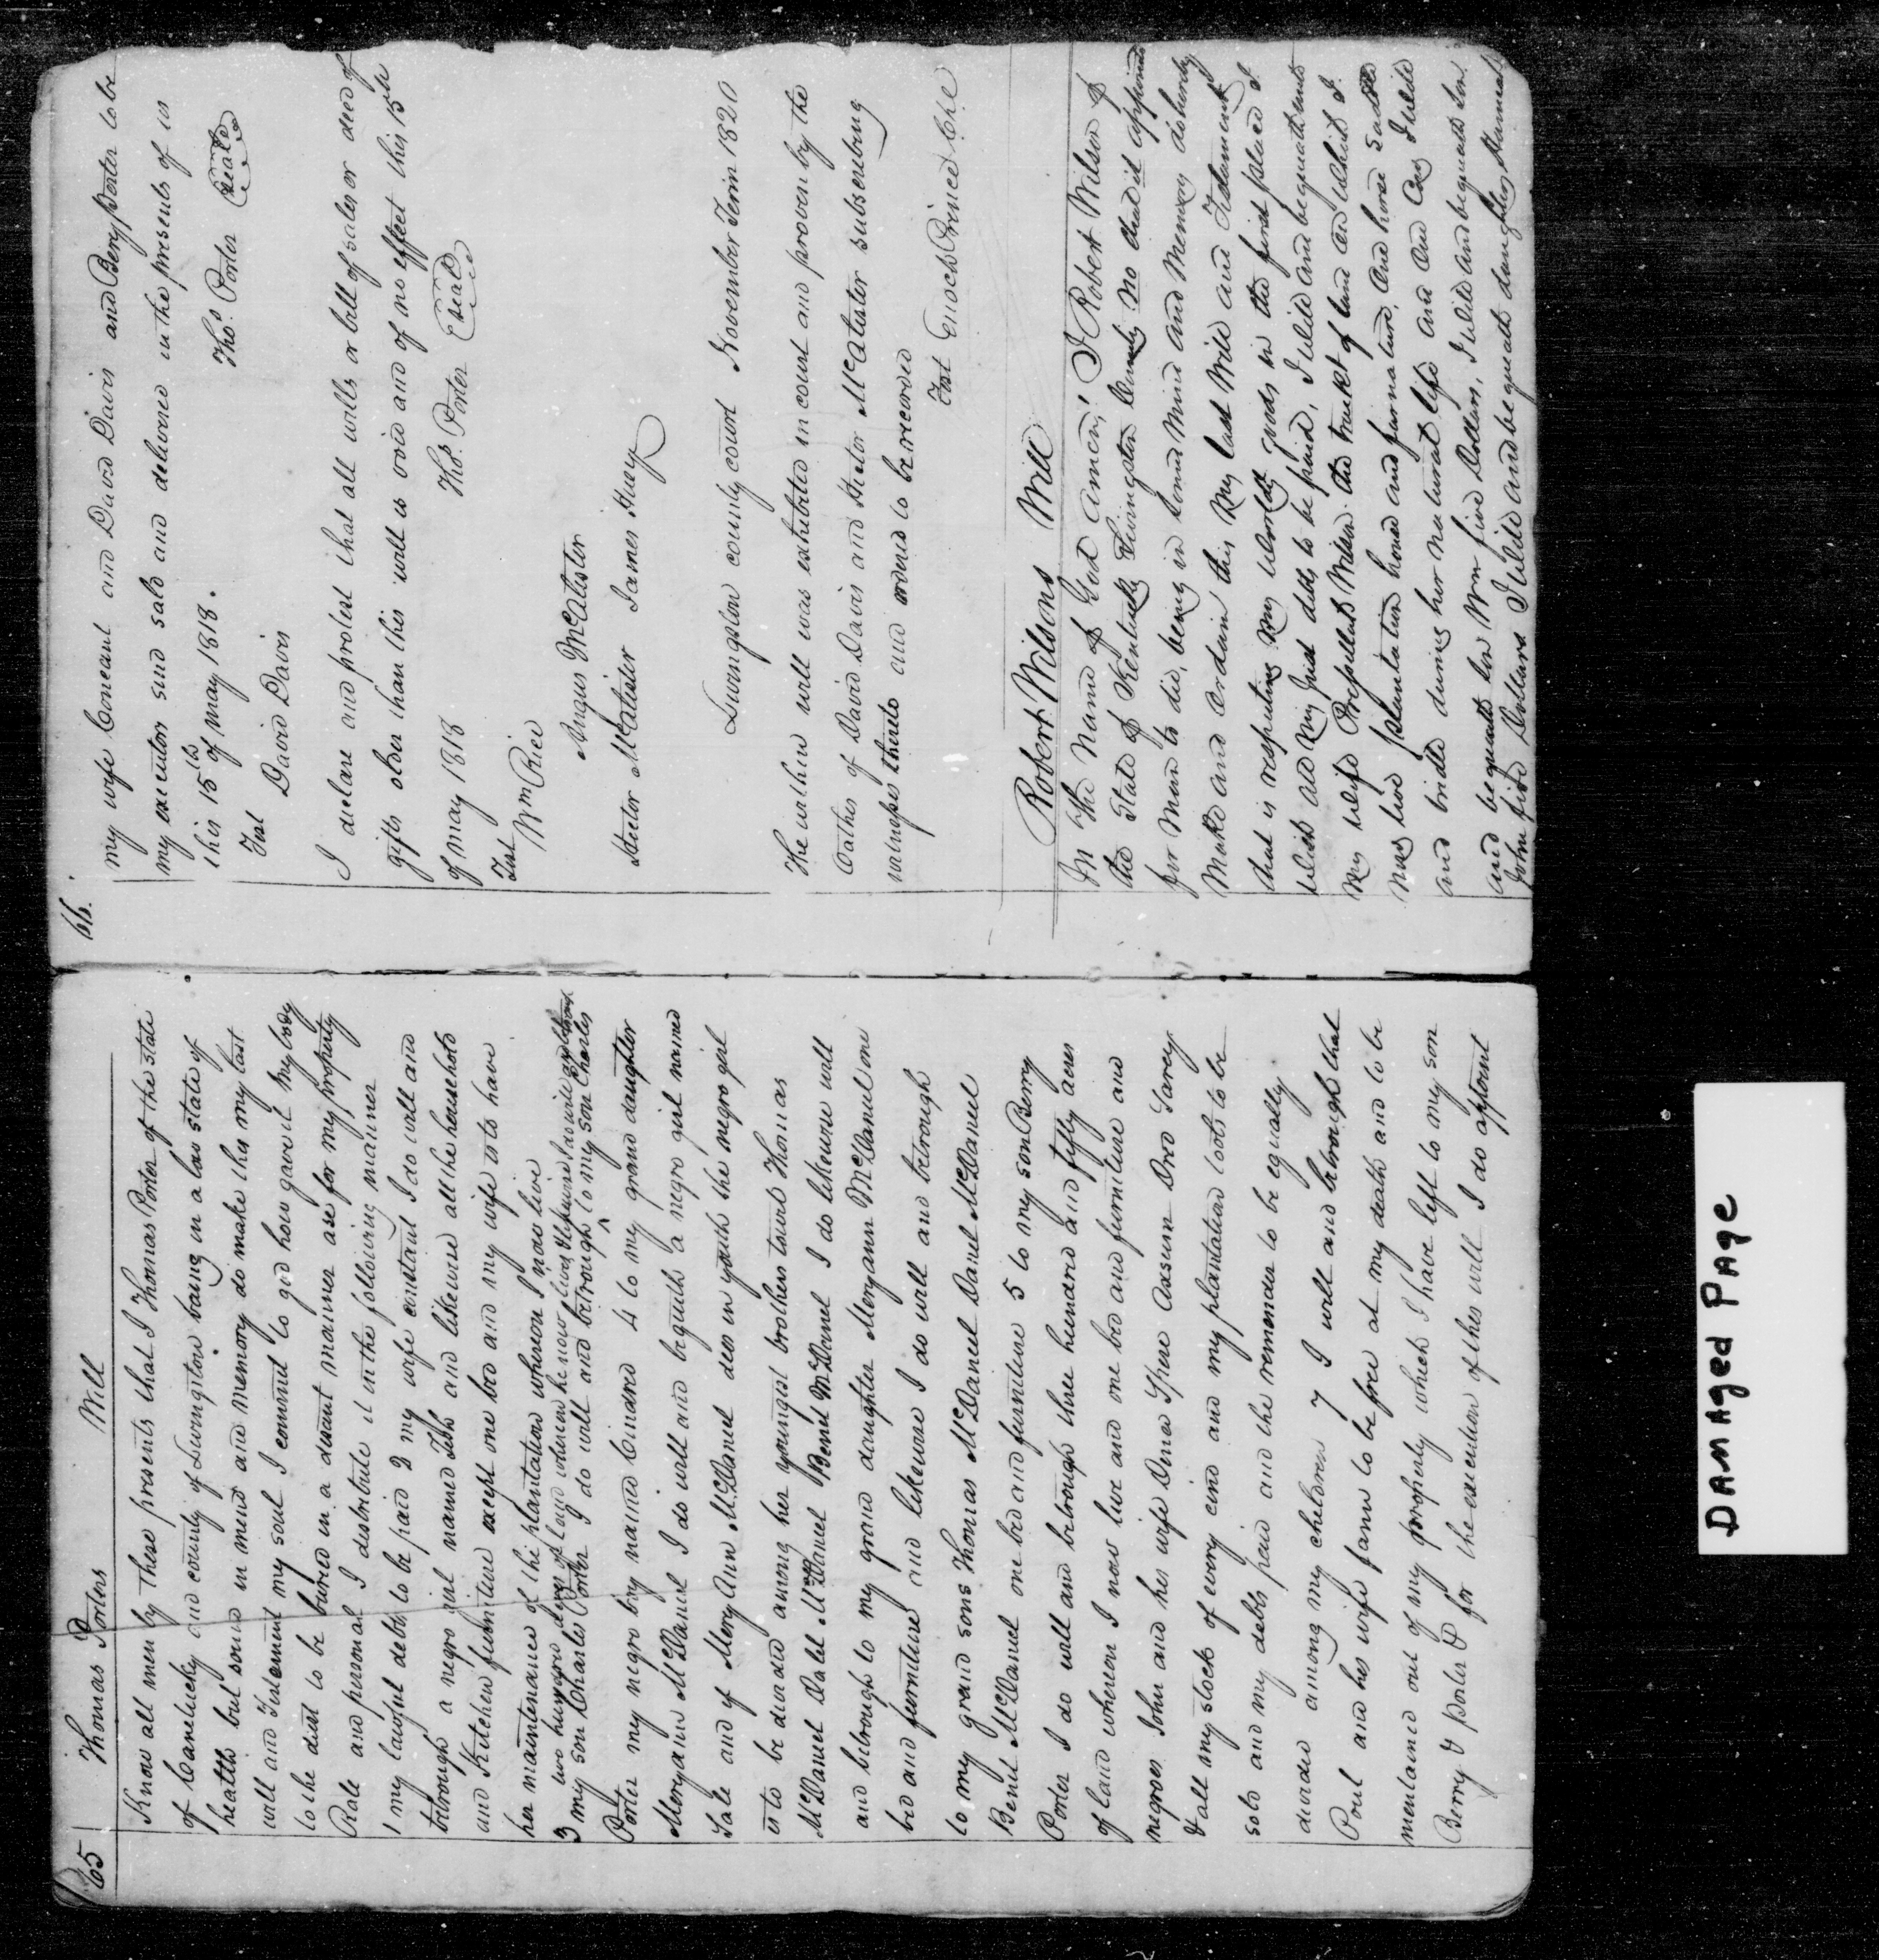 65 Thomas Porters Will
Know all men by these presents that I Thomas Porter of the state
of Cantucky and county of Livingston bang in a low state of
health but sound in mind and memory do make this my last
will and Testament my soul I commit to god how gave it my body
to the dust to be buried in a decant manner ase for my property
Rale and personal I distribute it in the following manner
1 my lawful debts to be paid 2 my wife constant I do will and
betrough a negro girl named Tabh and likewise all the household
and Kitchen furniture except one bed and my wife is to have
her maintenance of the plantation whereon I now live
two hundred acres of land whereon he now lives likewise I as will and
3 my son Charles Porter I do will and betrough to my son Charles
Porter my negro boy named Cinard 4 to my grand daughter
Meryann McDanel I do will and bequith a negro girl named
Sale and if Mery Ann McDanel des in youth the negro girl
is to be divided among her youngist brothers towit Thomas
McDanel Dalel McDanel Benel McDanel I do likewise will
and betrough to my grand daughter Meryann McDanel one
bed and furniture and likewise I do will and betrough
to my grand sons Thomas McDanel Danel McDanel
Benel McDanuel one bed and furniture 5 to my son Berry
Porter I do will and betrough three hundred and fifty acres
of land whereon I now live and one bed and furniture and
negroes John and his wife Dines Spere Axsum Dred Sarey
& all my stock of every cind and my plantation tools to be
sold and my debts paid and the remender to be equally
divided among my children 7 I will and betrough that
Poul and his wife fann to be free at my death and to be
mentained out of my property which I have left to my son
Berry & Porter & for the execution of this will I do appoint
66.
my wife Conctant and David Davis and Bery Porter to be
my executors sind sald and delivered in the presents of us
this 15th of may 1818. Thos. Porter Seal
Test
David Davis
I declare and protest that all wills or bill of sales or deed of
gifts older than this will is void and of no effect this 15th
of may 1818 Thos. Porter Seal
Test
Wm Rice
Angus McAlister
Hector McAlister James Huey
Livingston county court November Term 1820
The within will was exhibited in court and proven by the
Oathes of David Davis and Hector McAlister subscribing
witnesses thereto and ordered to be recorded
Test Enoch Prince Clk
Robert Wilsons Will
In the Name of God amen! I Robert Wilson of
the State of Kentucky Livingston County No that it appointed
for man to die, being in sound mind and Memory do hereby
Make and Ordain this My last Will and Testament
that is respecting My worldly goods in the first place I
Wish all My Just debts to be paid, I Will and bequath unto
My Wife Wilson the trackt of land on Which I
now live plantation horse and furnature, and horse saddle
and bridle during her natural life and one Cow I Will
and bequath son Wm five Dollars, I Will and bequath son
John five Dollars I Will and bequath daughter Hannah
DAMAged PAge